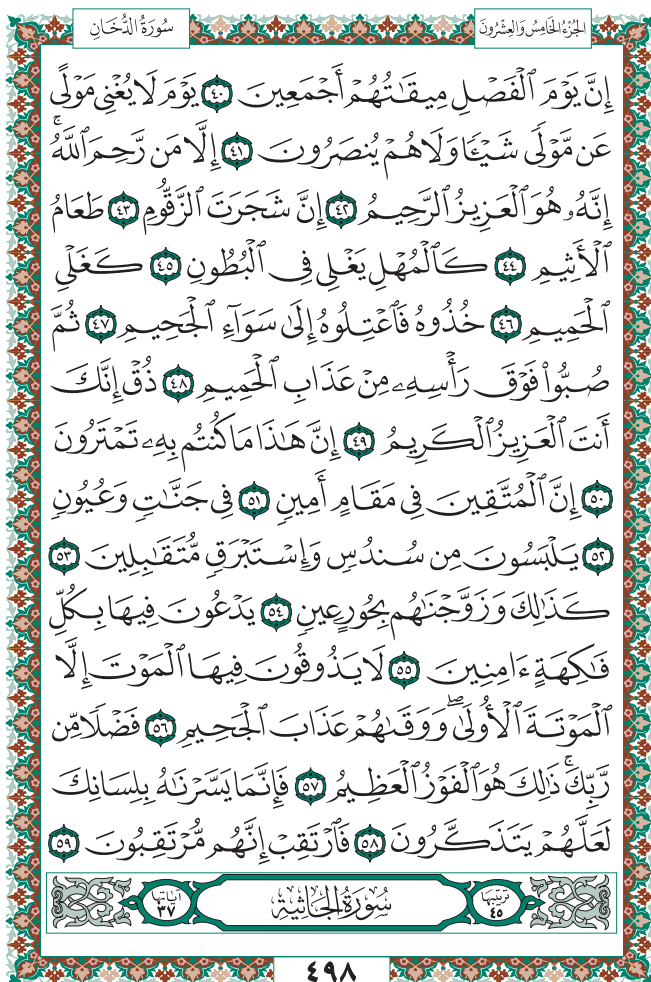 الجُزْءُ الخَامِسُ وَالعِشْرُونَ
سُورَةُ الدُّخَانِ
إِنَّ يَوْمَ ٱلْفَصْلِ مِيقَٰتُهُمْ أَجْمَعِينَ ٤٠ يَوْمَ لَا يُغْنِى مَوْلًى
عَن مَّوْلًى شَيْـًٔا وَلَا هُمْ يُنصَرُونَ ٤١ إِلَّا مَن رَّحِمَ ٱللَّهُ ۚ
إِنَّهُۥ هُوَ ٱلْعَزِيزُ ٱلرَّحِيمُ ٤٢ إِنَّ شَجَرَتَ ٱلزَّقُّومِ ٤٣ طَعَامُ
ٱلْأَثِيمِ ٤٤ كَٱلْمُهْلِ يَغْلِى فِى ٱلْبُطُونِ ٤٥ كَغَلْىِ
ٱلْحَمِيمِ ٤٦ خُذُوهُ فَٱعْتِلُوهُ إِلَىٰ سَوَآءِ ٱلْجَحِيمِ ٤٧ ثُمَّ
صُبُّوا۟ فَوْقَ رَأْسِهِۦ مِنْ عَذَابِ ٱلْحَمِيمِ ٤٨ ذُقْ إِنَّكَ
أَنتَ ٱلْعَزِيزُ ٱلْكَرِيمُ ٤٩ إِنَّ هَٰذَا مَا كُنتُم بِهِۦ تَمْتَرُونَ
٥٠ إِنَّ ٱلْمُتَّقِينَ فِى مَقَامٍ أَمِينٍ ٥١ فِى جَنَّٰتٍ وَعُيُونٍ
٥٢ يَلْبَسُونَ مِن سُندُسٍ وَإِسْتَبْرَقٍ مُّتَقَٰبِلِينَ ٥٣
كَذَٰلِكَ وَزَوَّجْنَٰهُم بِحُورٍ عِينٍ ٥٤ يَدْعُونَ فِيهَا بِكُلِّ
فَٰكِهَةٍ ءَامِنِينَ ٥٥ لَا يَذُوقُونَ فِيهَا ٱلْمَوْتَ إِلَّا
ٱلْمَوْتَةَ ٱلْأُولَىٰ ۖ وَوَقَىٰهُمْ عَذَابَ ٱلْجَحِيمِ ٥٦ فَضْلًا مِّن
رَّبِّكَ ۚ ذَٰلِكَ هُوَ ٱلْفَوْزُ ٱلْعَظِيمُ ٥٧ فَإِنَّمَا يَسَّرْنَٰهُ بِلِسَانِكَ
لَعَلَّهُمْ يَتَذَكَّرُونَ ٥٨ فَٱرْتَقِبْ إِنَّهُم مُّرْتَقِبُونَ ٥٩
ترتيبها ٤٥ سُورَةُ الجَاثِيَةِ آياتها ٣٧
٤٩٨